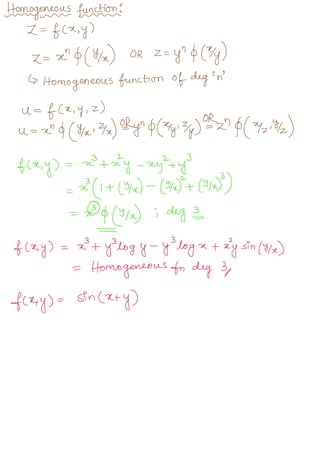 Homogeneous function:
Z = f(x,y)
Z = xⁿ φ(y/x) OR Z = yⁿ φ(x/y)
↳ Homogeneous function of deg 'n'
u = f(x,y,z)
u = xⁿ φ(y/x, z/x) OR yⁿ φ(x/y, z/y) OR = zⁿ φ(x/z, y/z)
f(x,y) = x³ + x²y - xy² + y³
= x³(1 + (y/x) - (y/x)² + (y/x)³)
= x³ φ(y/x) ; deg 3
f(x,y) = x³ + y³log y - y³log x + x²y sin(y/x)
= Homogeneous fn deg 3
f(x,y) = sin(x+y)